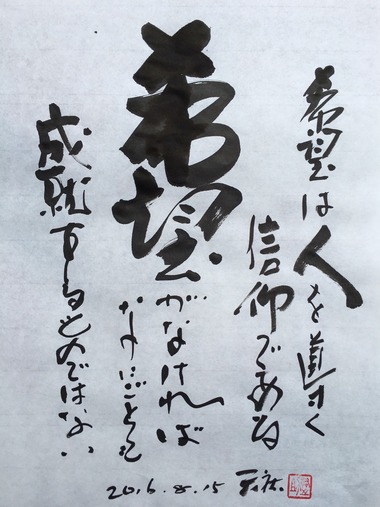 希望は人を導く
信仰である
希望
がなければ
なにごとも
成就するものではない
2016.8.15